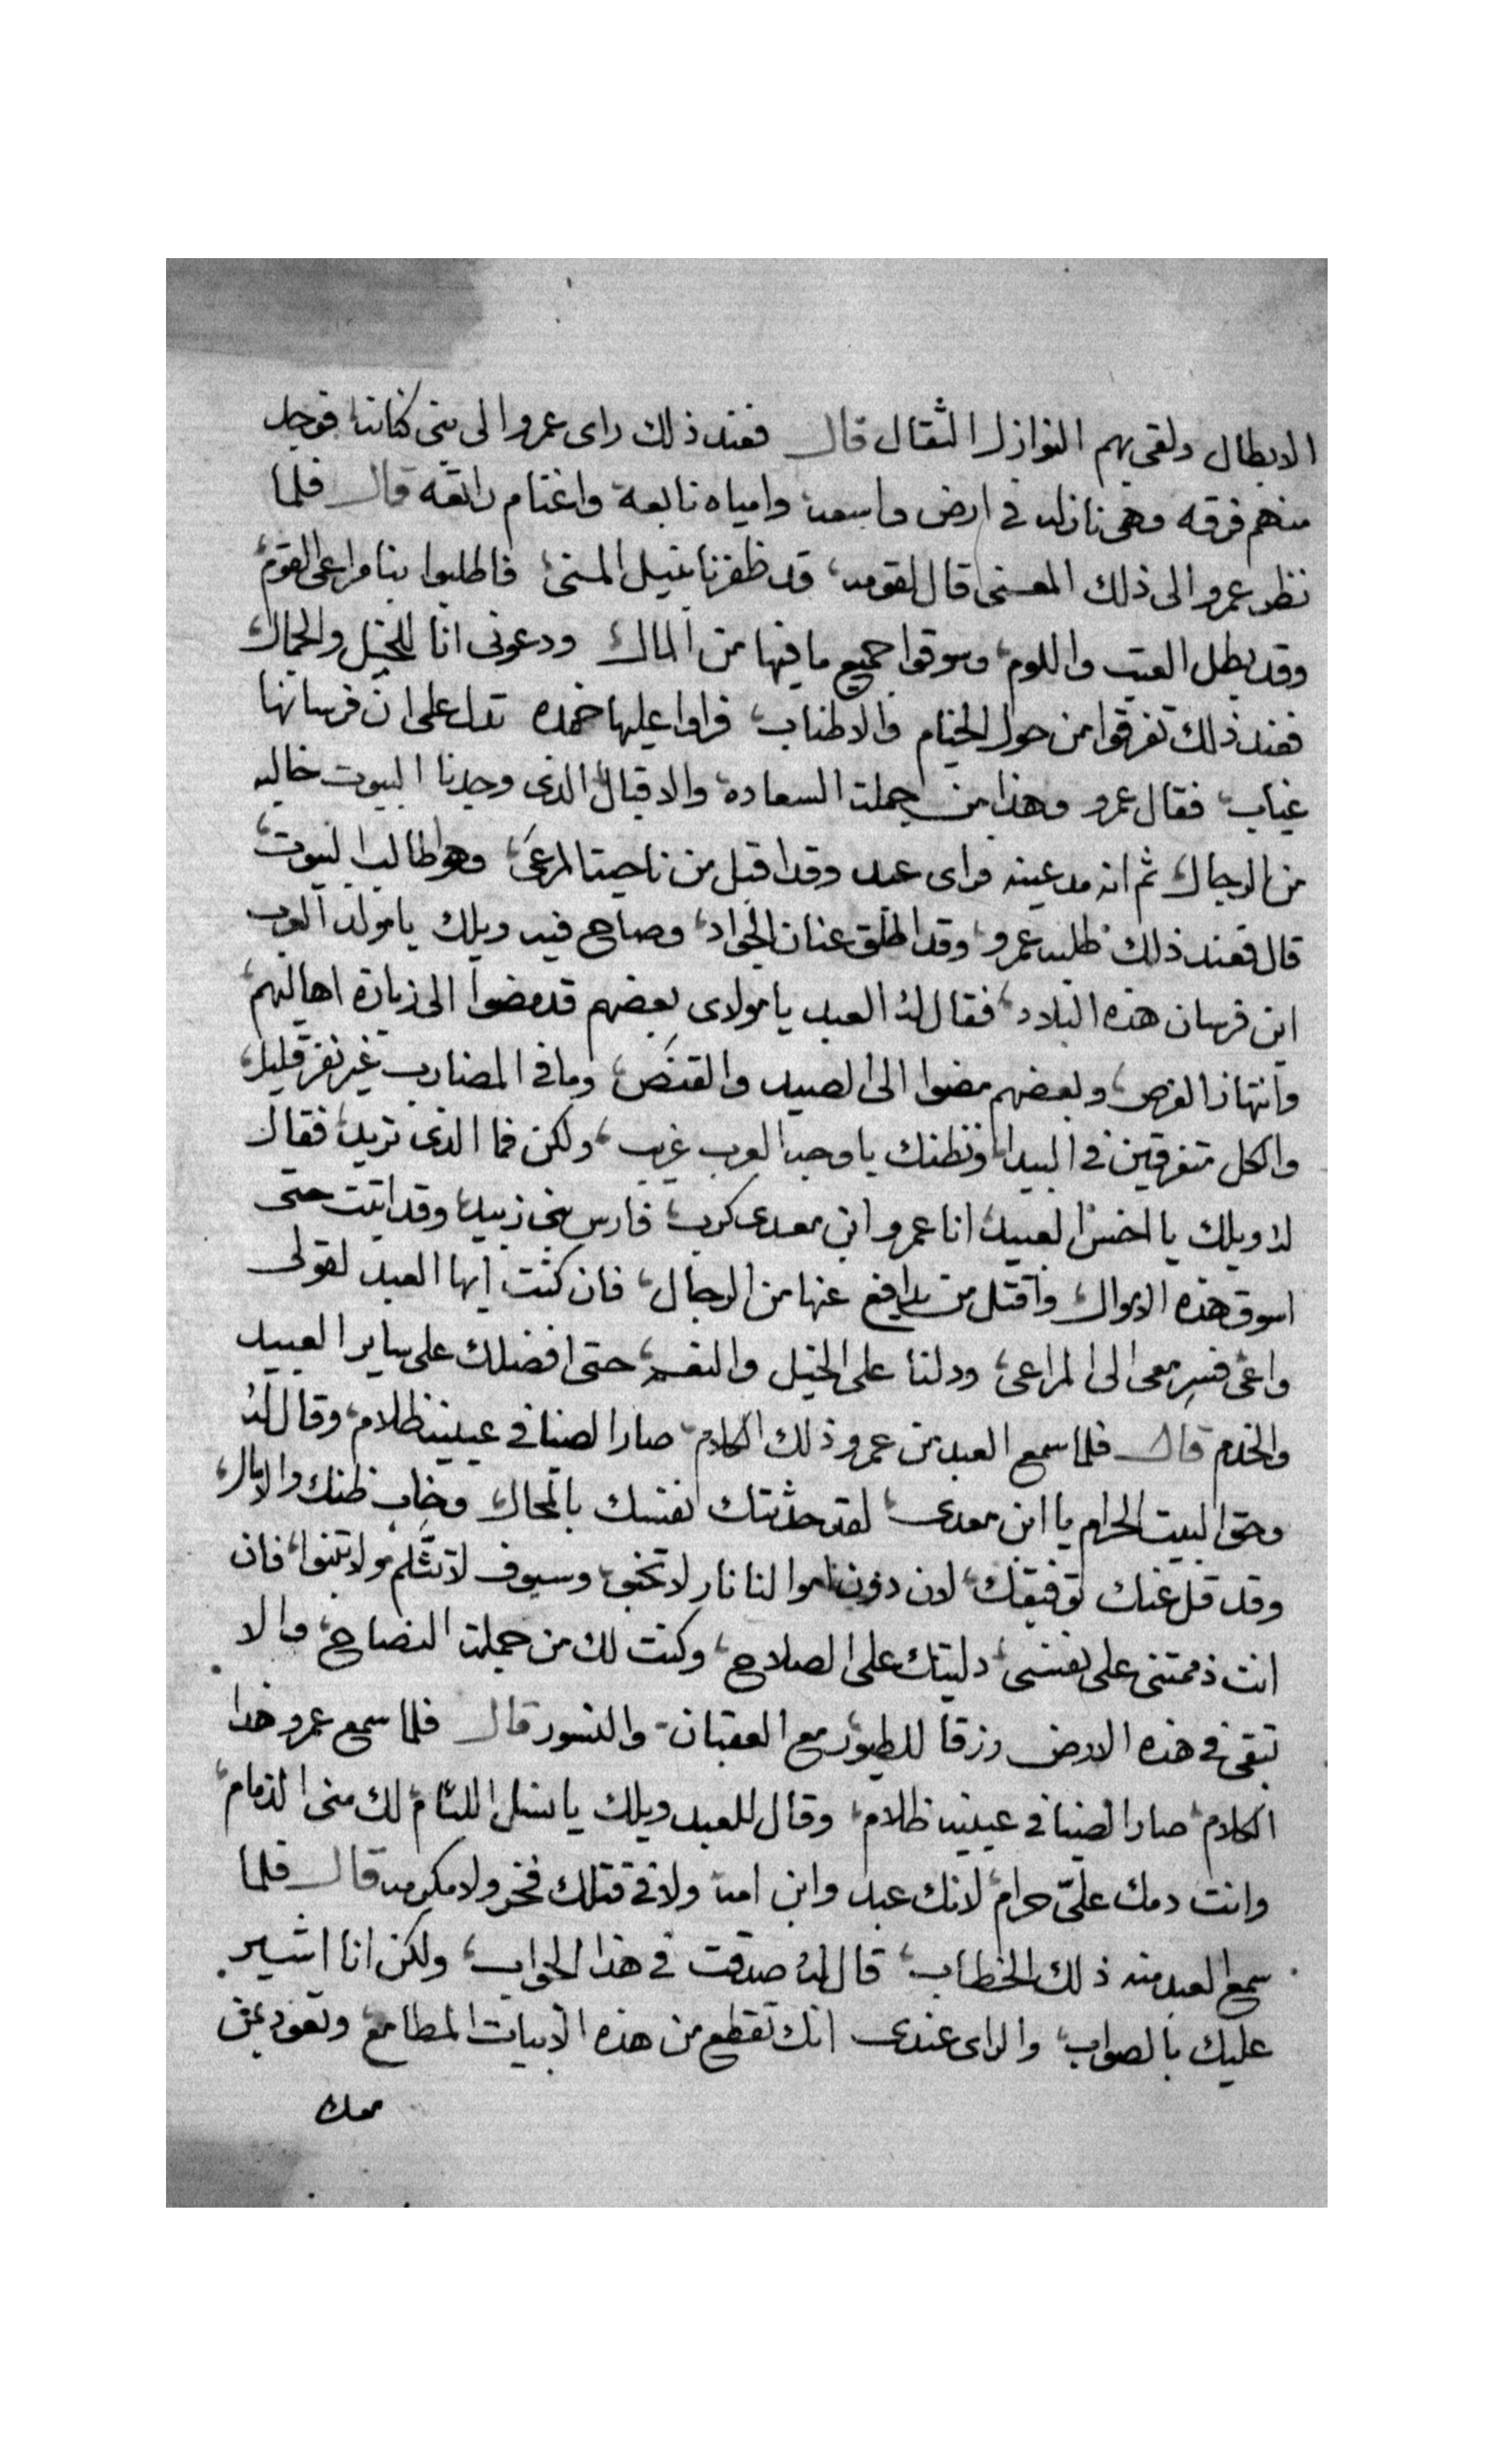 الابطال ولقى بهم النوازل الثقال قال فعند ذلك راى عمرو الى بنى كنانة فوجد
منهم فرقه وهى نازله فى ارض واسعة وامياه نابعة واغنام راتعه قال فلما
نظر عمرو الى ذلك المعنى قال لقومه قد ظفرنا بنيل المنى فاطلبوا بنا مراعى القوم
وقد بطل العتب واللوم وسوقوا جميع ما فيها من المال ودعونى انا للخيل والجمال
فعند ذلك تفرقوا من حول الخيام والاطناب فراوا عليها خمده تدل على ان فرسانها
غياب فقال عمرو وهذا من جملة السعادة والاقبال الذى وجدنا البيوت خاليه
من الرجال ثم انه مد عينه فراى عبد وقد اقبل من ناحية المرعى وهو طالب البيوت
قال فعند ذلك طلبه عمرو وقد اطلق عنان الجواد وصاح فيه ويلك يا مولد العرب
اين فرسان هذه البلاد فقال له العبد يا مولاى بعضهم قد مضوا الى زيارة اهاليهم
وانتهاز الفرص وبعضهم مضوا الى الصيد والقنص وما فى المضارب غير نفر قليل
والكل متفرقين فى البيدا ونظنك يا وجه العرب غريب ولكن فما الذى تريد فقال
له ويلك يا اخس العبيد انا عمرو ابن معدى كرب فارس بنى زبيد وقد اتيت حتى
اسوق هذه الاموال واقتل من يدافع عنها من الرجال فان كنت ايها العبد لقولى
واعى فسِر معى الى المراعى ودلنا على الخيل والنعم حتى افضلك على ساير العبيد
والخدم قال فلما سمع العبد من عمرو ذلك الكلام صار الضيا فى عينيه ظلام وقال له
وحق البيت الحرام يا ابن معدى لقد حدثتك نفسك بالمحال وخاب ظنك والامال
وقد قل عنك توفيقك لان دون اموالنا نار لا تخبى وسيوف لا تثلم ولا تنبوا فان
انت ذممتنى على نفسى دليتك على الصلاح وكنت لك من جملة النصاح والا
تبقى فى هذه الارض رزقا للطيور مع العقبان والنسور قال فلما سمع عمرو هذا
الكلام صار الضيا فى عينيه ظلام وقال للعبد ويلك يا نسل اللئام لك منى الذمام
وانت دمك علىّ حرام لانك عبد وابن امة ولا فى قتلك فخر ولا مكرمه قال فلما
سمع العبد منه ذلك الخطاب قال له صدقت فى هذا الجواب ولكن انا اشير
عليك بالصواب والراى عندى انك تقطع من هذه الابيات المطامع وتعود بمن
معك